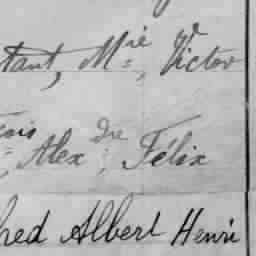 tant, M^ie, Victor
çois, Alex^dre, Félix
red Albert Henri